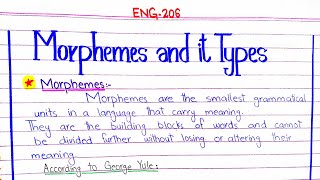 ENG-206
Morphemes and it Types
Morphemes:-
Morphemes are the smallest grammatical
units in a language that carry meaning.
They are the building blocks of words and cannot
be divided further without losing or altering their
meaning
According to George Yule: